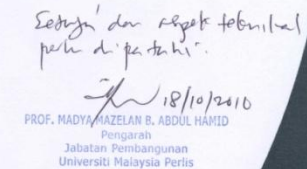 Setuju dan aspek teknikal
perlu dipatuhi.
18/10/2010
PROF. MADYA MAZELAN B. ABDUL HAMID
Pengarah
Jabatan Pembangunan
Universiti Malaysia Perlis